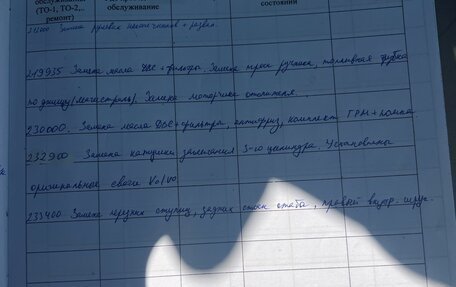 обслуживания
(ТО-1, ТО-2,..
ремонт)
обслуживание
состоянии
Замена рулевых наконечников + развал.
219935 Замена масла ДВС + фильтра. Замена троса ручника, топливная трубка
по днищу (магистраль). Замена моторчика отопителя.
230000. Замена масла ДВС + фильтра, антифриз, комплект ГРМ + помпа.
232900 Замена катушки зажигания 3-го цилиндра. Установлены
оригинальные свечи Volvo
233400 Замена передних ступиц, задних стоек стаба, правый внутр. шрус.